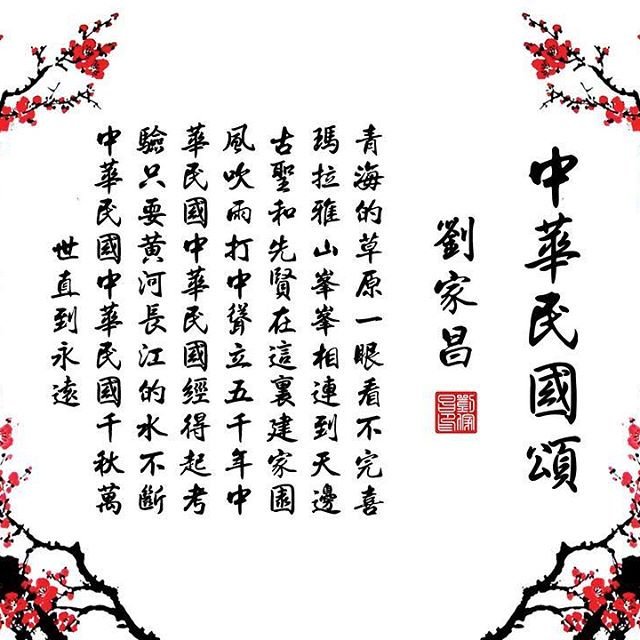 中華民國頌
劉家昌
青海的草原一眼看不完喜
瑪拉雅山峯峯相連到天邊
古聖和先賢在這裏建家園
風吹雨打中聳立五千年中
華民國中華民國經得起考
驗只要黃河長江的水不斷
中華民國中華民國千秋萬
世直到永遠